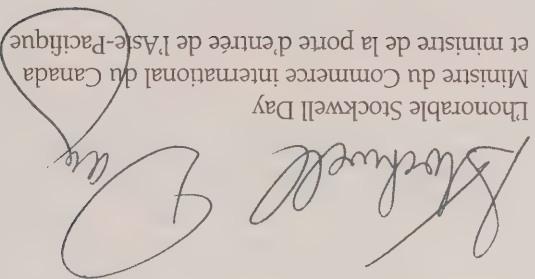 Stockwell Day
L'honorable Stockwell Day
Ministre du Commerce international du Canada
et ministre de la porte d'entrée de l'Asie-Pacifique